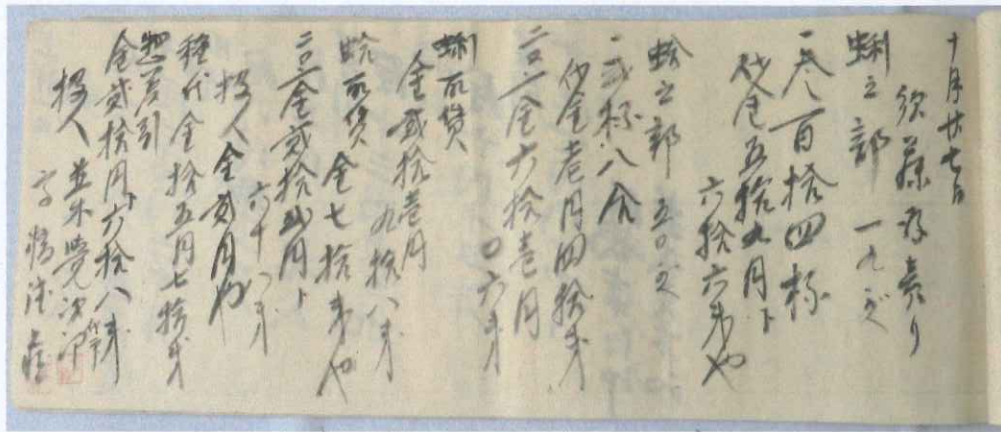 十月廿七日
須藤存売り
蜊之部 一九〆
一 参百拾四杯
代金五拾九円ト
六拾六戋也
蛤之部 五〇〆
一 弐杯八合
代金壱円四拾戋
二口〆金六拾壱円
〇六戋
蜊取賃
金弐拾壱円
九拾八戋
蛤取賃 金七拾戋也
二口〆金弐拾弐円ト
六十八戋
投人 金弐円也
種代金拾五円七拾戋
惣差引
金弐拾円ト六拾八戋
投人 並木覚次郎